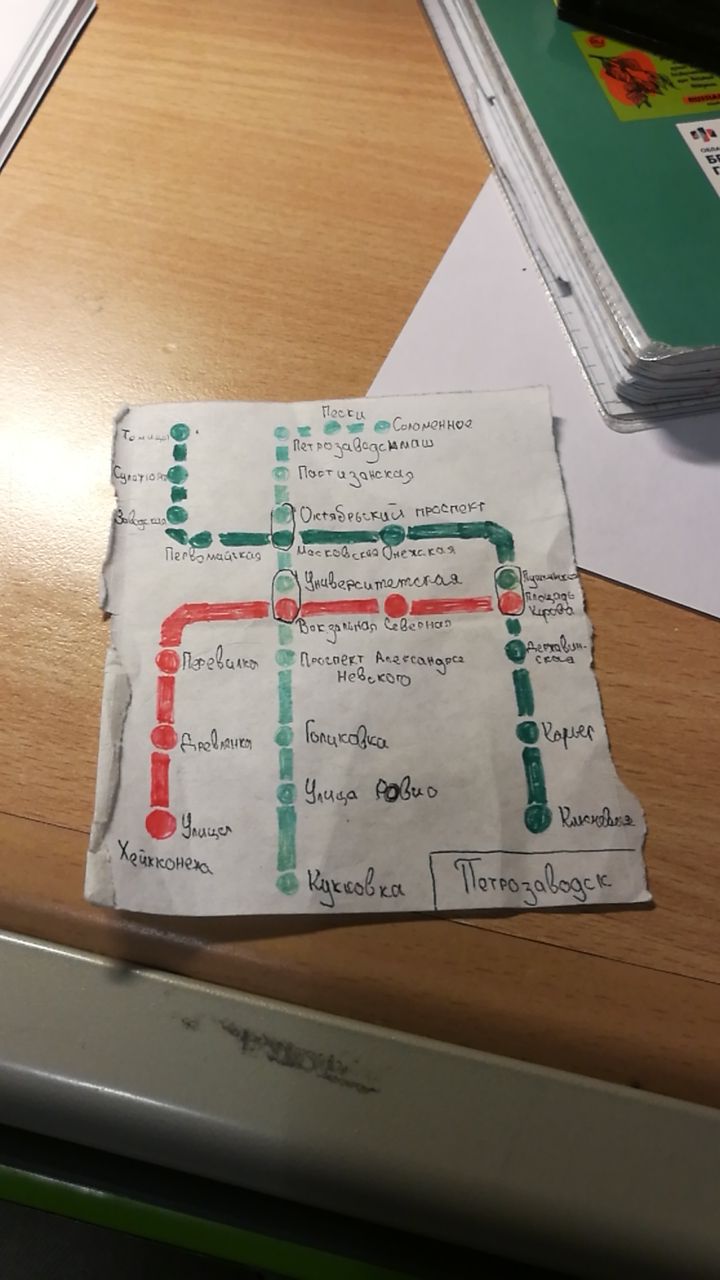 Пески
Соломенное
Томицы
Петрозаводскмаш
Пастизанская
Сулажгора
Октябрьский проспект
Заводская
Первомайская
Московская
Онежская
Университетская
Пушкинская
Площадь
Кирова
Вокзальная
Северная
Перевалка
Проспект Александра
Невского
Державин-
ская
Древлянка
Голиковка
Карьер
Улица Ровио
Улица
Хейкконена
Ключевая
Кукковка
Петрозаводск